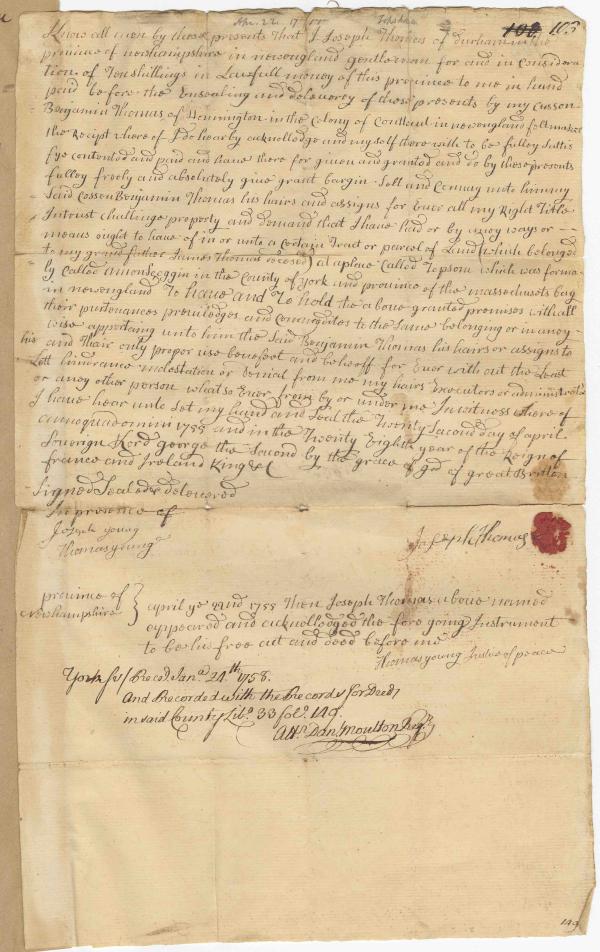 Apr. 22. 1755 Topsham
102 103
Know all men by these presents That I Joseph Thomas of Durham in the
province of newhampshire in newengland gentleman for and in Considera
tion of Ten shillings in Lawfull money of this province to me in hand
paid before the Ensealing and delevery of these presents by my Cussen
Benjamin Thomas of in the Colony of in newengland feltmaker
the Recipt where of I do hearby acknolledge and my self there with to be fulley Sattis
fye contented and paid and have there for given and granted and do by these presents
fulley freely and absolutely give grant bargin Sell and Convay unto him my
Said Cossen Benjamin Thomas his hairs and assigns for Ever all my Right Title
Intrust challinge property and demand that I have had or by anoy ways or
means ought to have of in or unto a Certain Tract or parcel of Land which belonged
to my grand father James Thomas at a place Called Topsom which was forme
by Called in the County of york and province of the massachusets bay
in newengland To have and To hold the above granted premises with all
their purtenances previledges and commodites to the Same belonging or in anoy
wise appertaing unto him the Said Benjamin Thomas his hairs or assigns to
his and Thair only proper use benefeet and behoff for Ever with out the Least
Lett hindrance molestation or denial from me my hairs Executors or administrators
or anoy other person what so Ever from by or under me In witness where of
I have hear unto Set my hand and Seal the Twenty Second day of april
annoquadomini 1755 and in the Twenty Eighth year of the Reign of
Soverign Lord george the Second by the grace of god of great Britton
france and Ireland King &c
Signed Sealed & delevered
In presence of
Joseph young
Thomas young
Joseph Thomas
province of
newhampshire } april ye 22nd 1755 Then Joseph Thomas above named
appeared and acknolledged the fore going Instrument
to be his free act and deed before me
Thomas young Justice of peace
York ss/ Reced Jana. 24th 1758.
And Recorded with the Records for Deeds
in said County Libo. 33 folo. 149.
Attr. Danl Moulton Regr
149